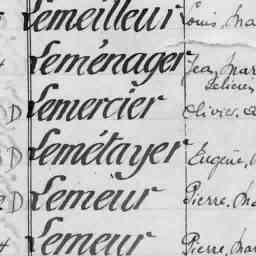 Lemeilleur Louis, Ma
Leménager Jean, Mar
D Lemercier Olivier, a
D Lemétayer Eugène,
D Lemeur Pierre, Ma
Lemeur Pierre, Mar